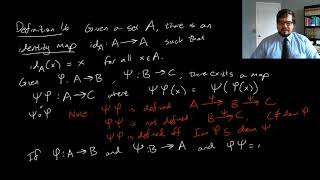 Definition 16 Given a set A, there is an
identity map id_A : A → A such that
id_A(x) = x for all x ∈ A.
Given φ : A → B, ψ : B → C, there exists a map
ψφ : A → C where ψφ(x) = ψ(φ(x))
ψ∘φ Note: ψφ is defined A →^φ B →^ψ C
φψ is not defined B →^ψ C A →^φ B, C ≠ dom φ
ψφ is defined iff Im φ ⊆ dom ψ
If φ : A → B and ψ : B → A and φψ =